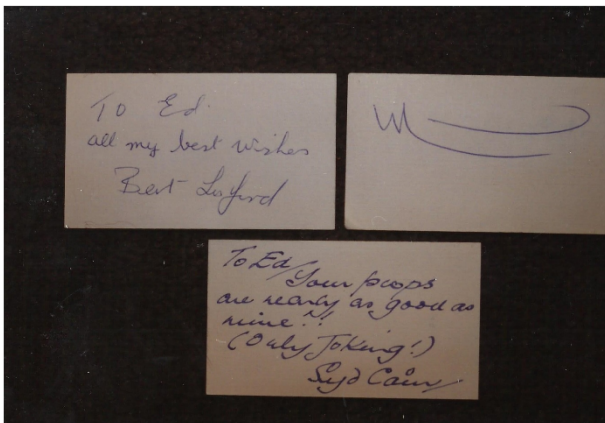 To Ed.
all my best wishes
Bert Luxford
To Ed/
Your props
are nearly as good as
mine!!
(Only Joking!)
Syd Cain